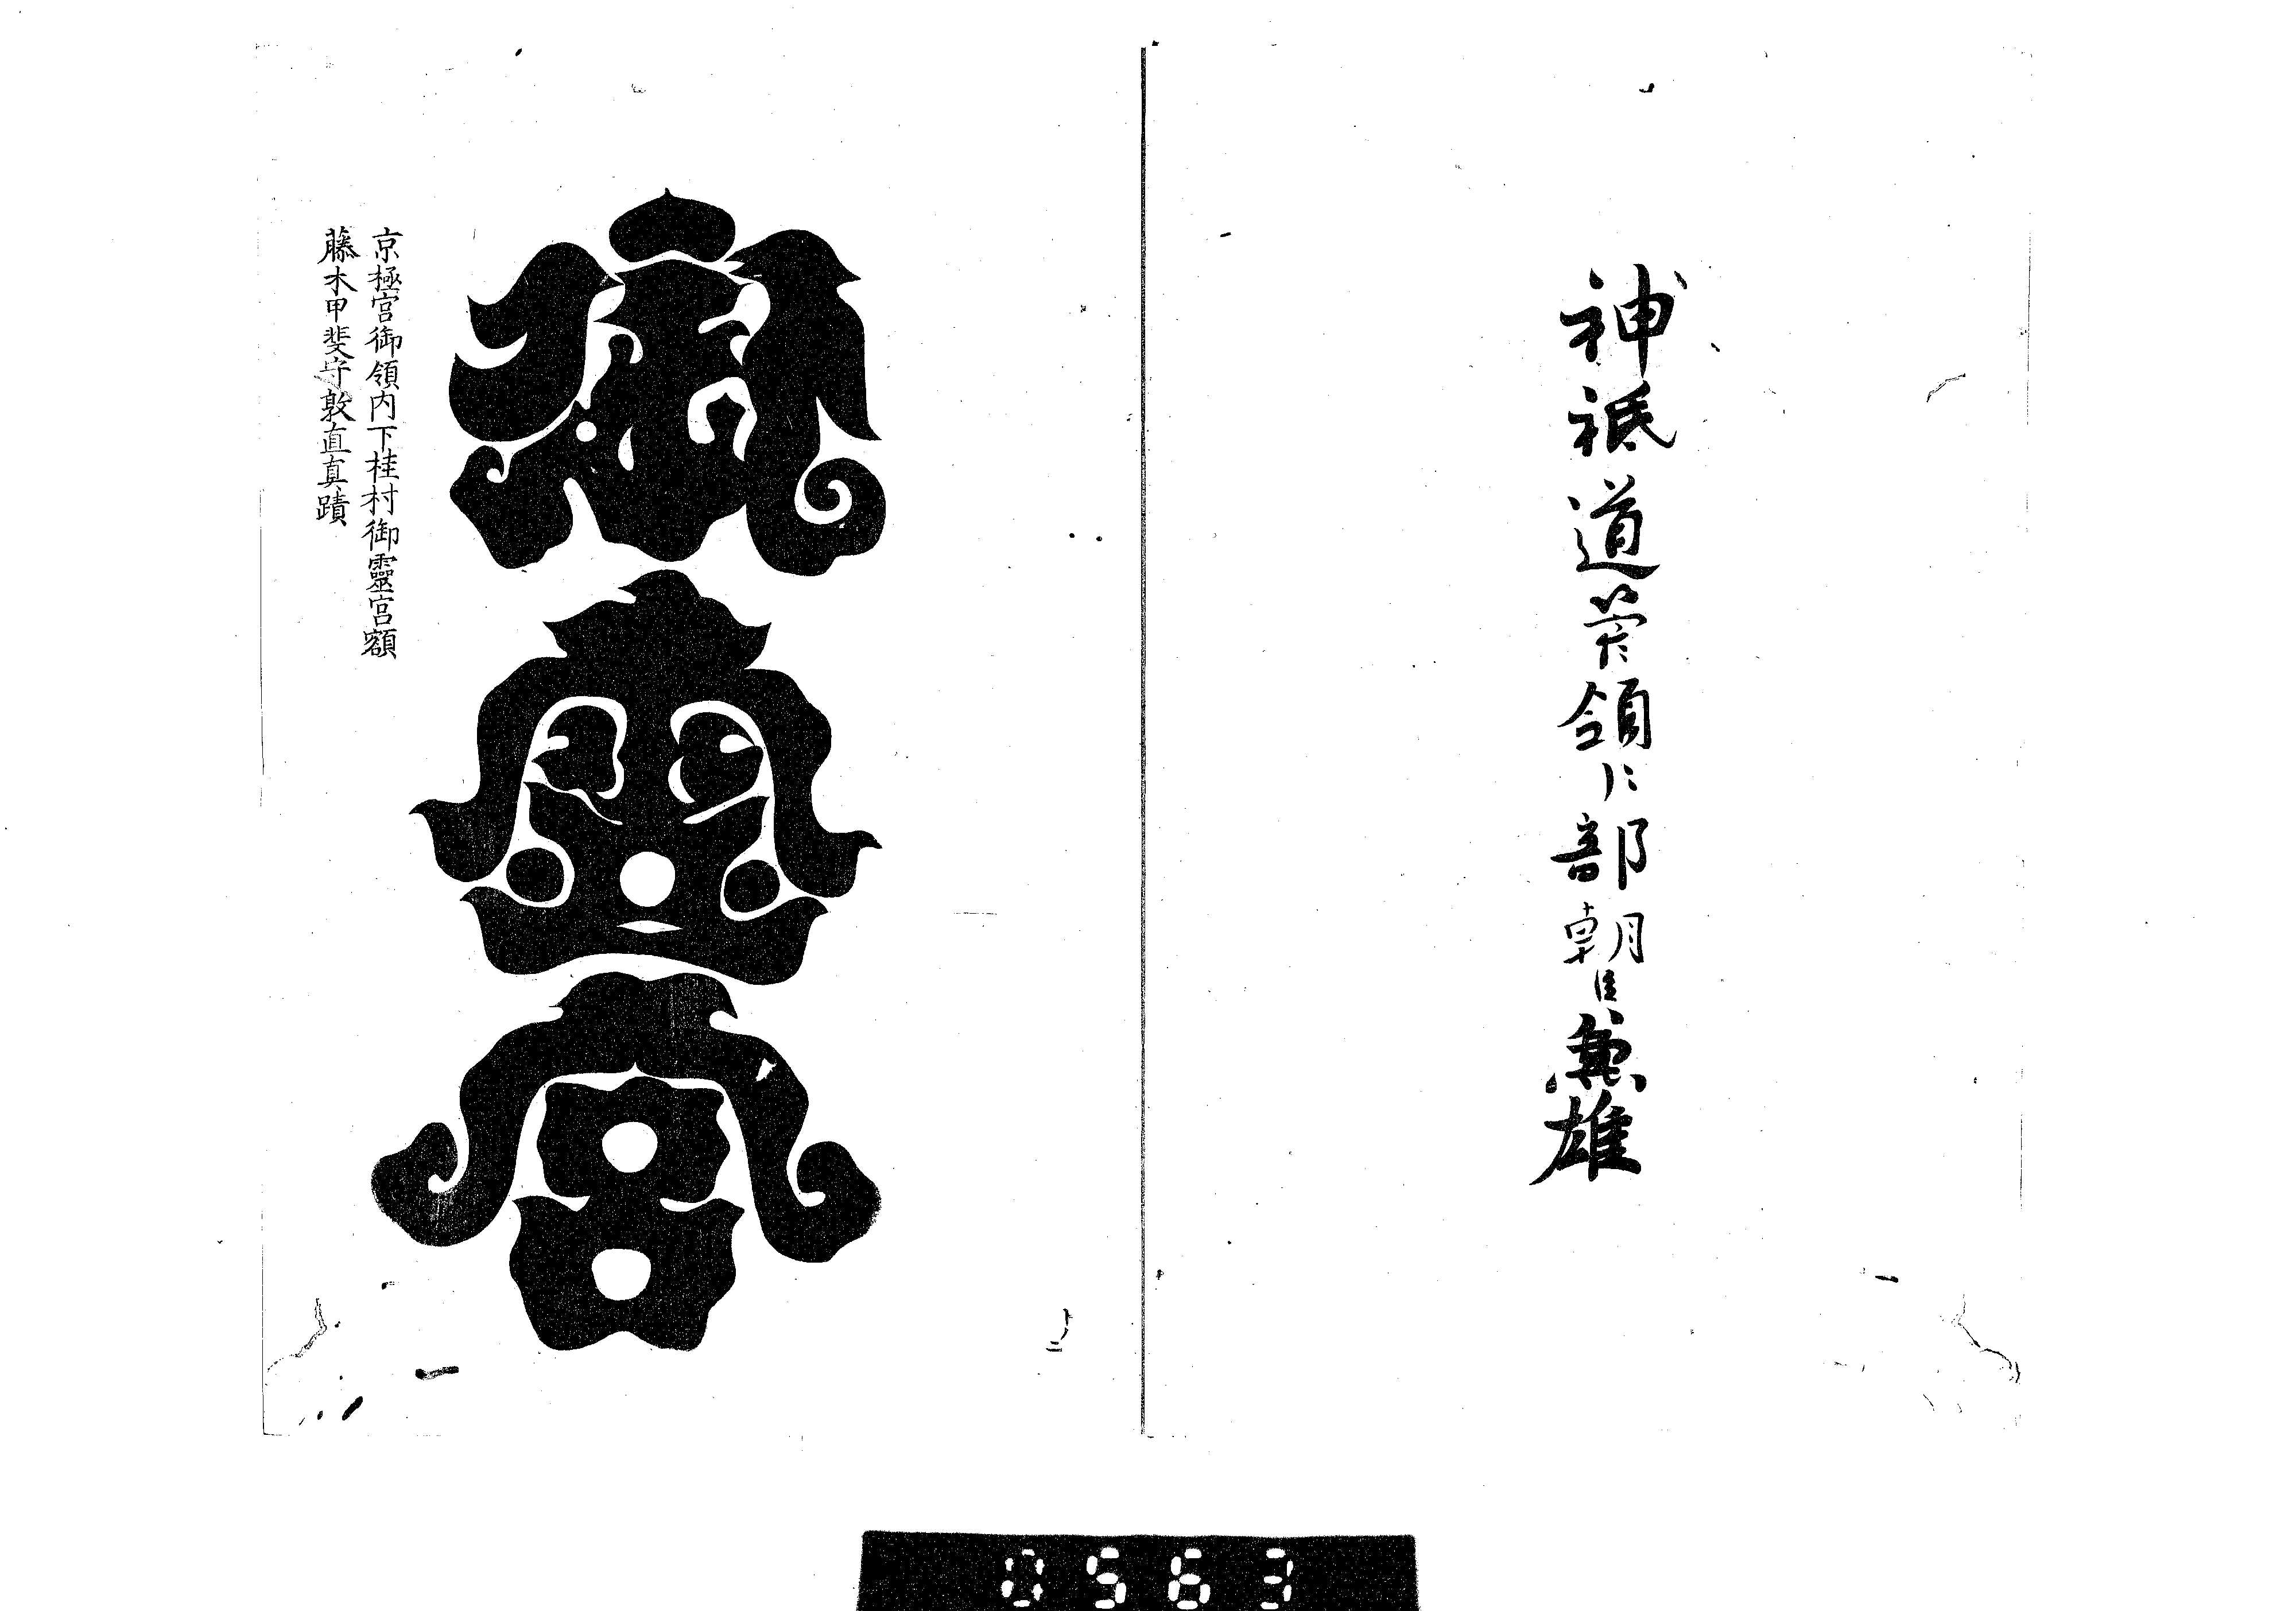 神祇道管領卜部朝臣兼雄
御靈宮
京極宮御領内下桂村御靈宮額
藤木甲斐守敦直真蹟
0563